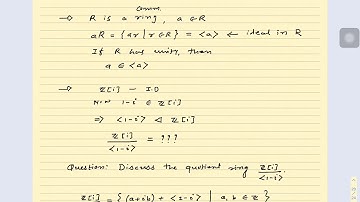 Comm.
→ R is a ring, a ∈ R
aR = {ar | r ∈ R} = <a> ← ideal in R
If R has unity, then
a ∈ <a>
→ Z[i] - I.D
Now 1-i ∈ Z[i]
⇒ <1-i> ◁ Z[i]
Z[i] / <1-i> = ???
Question: Discuss the quotient ring Z[i] / <1-i>.
Z[i] = {(a+ib) + <1-i> | a, b ∈ Z}